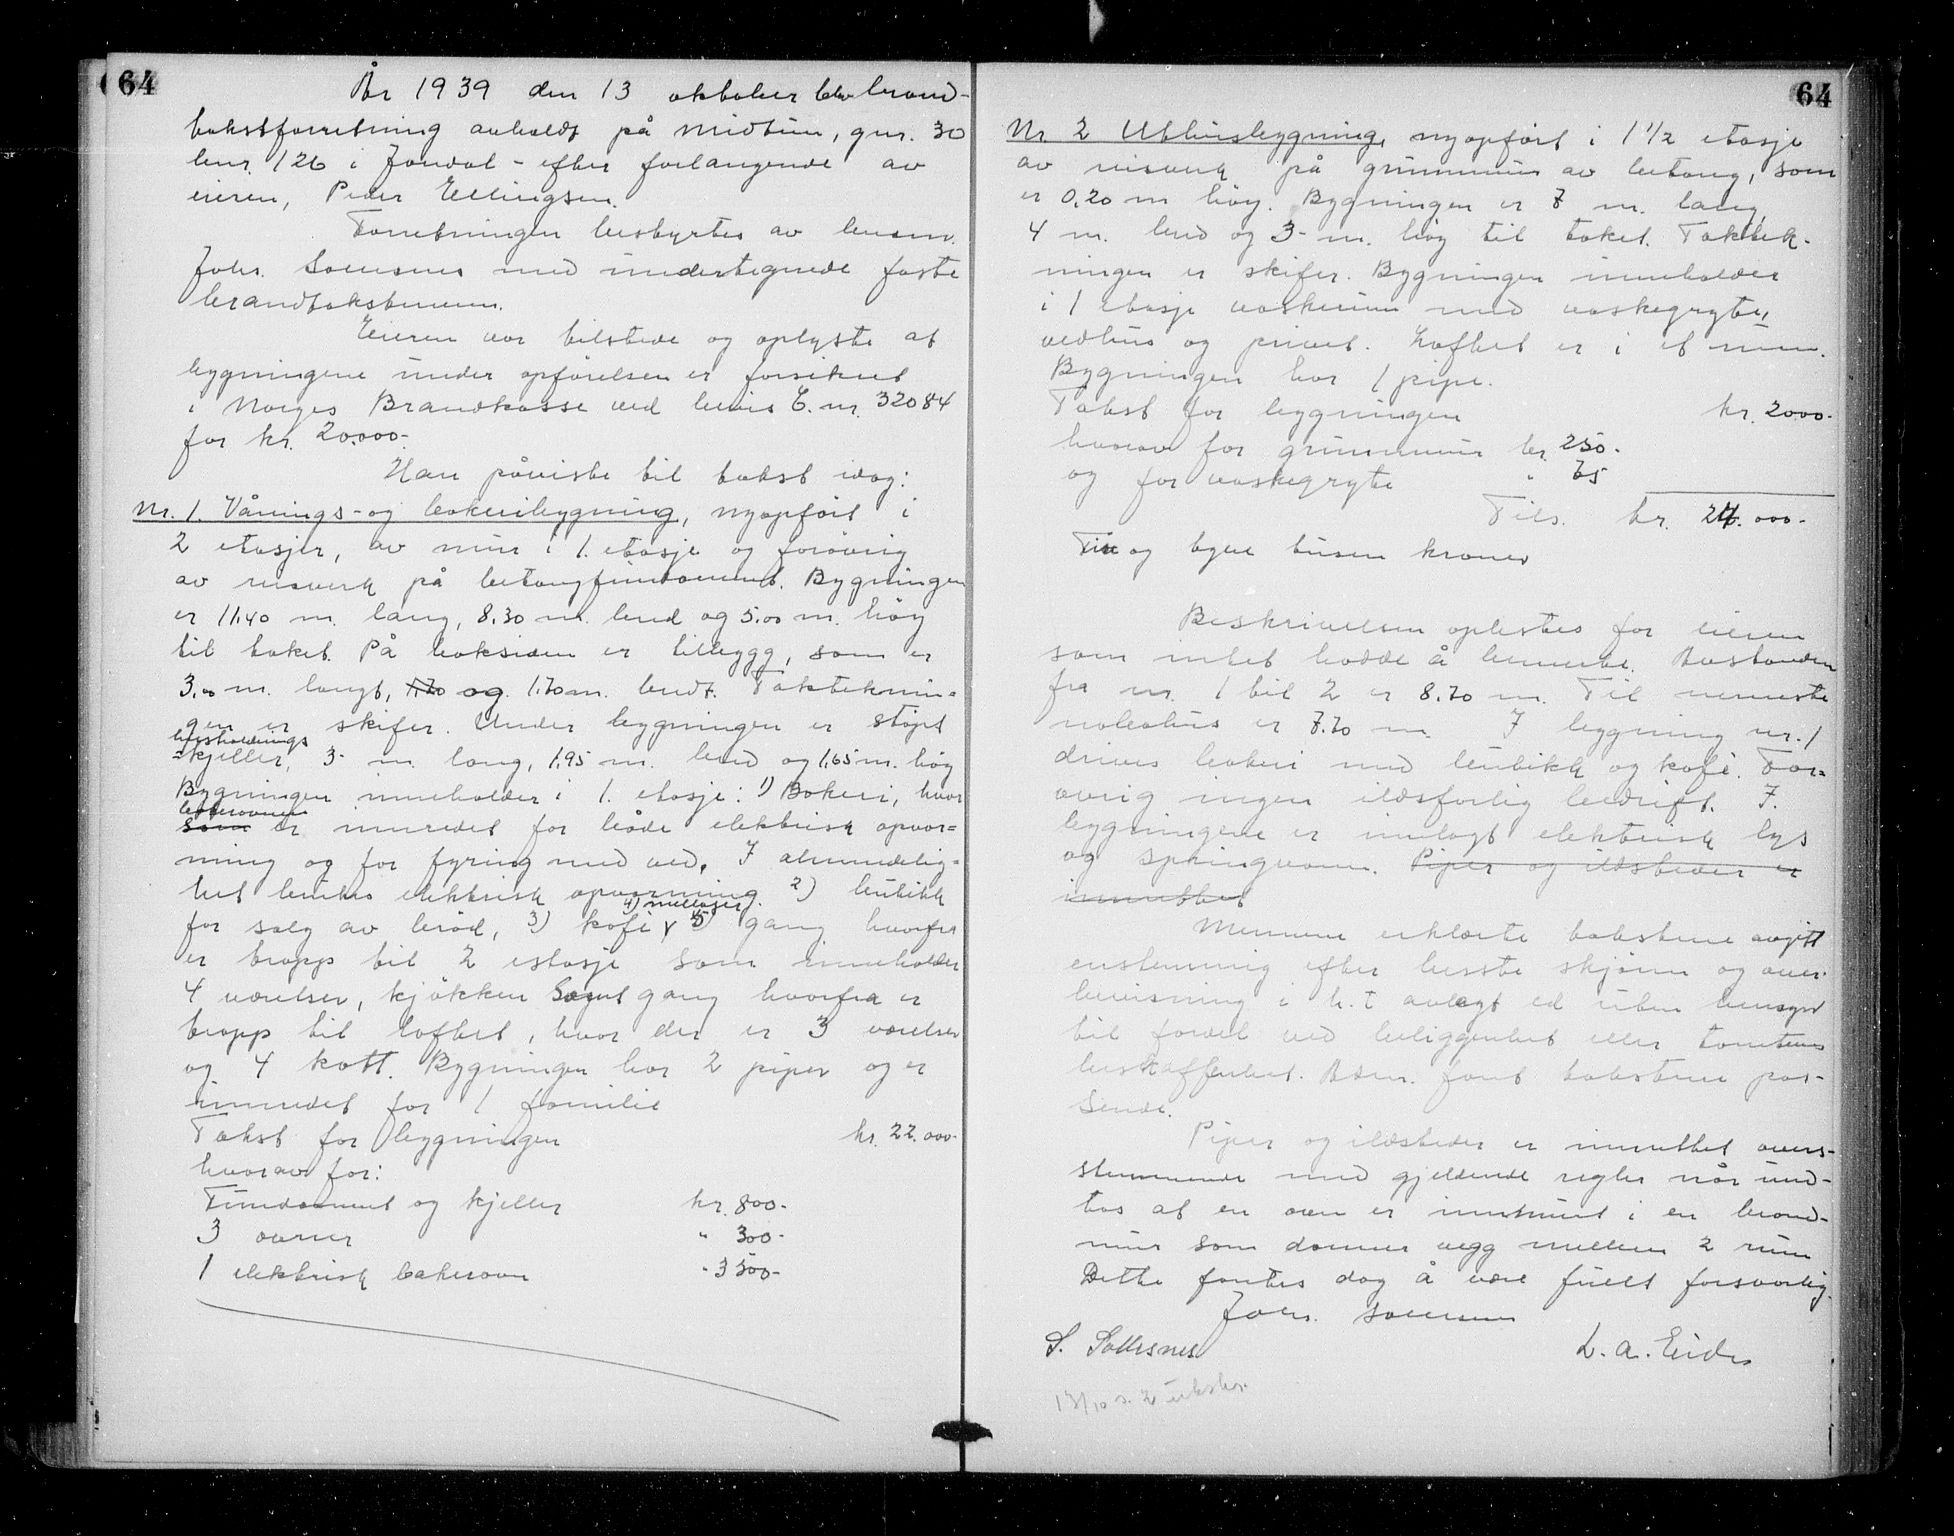 64
År 1939 den 13 oktober blev brand-
takstforretning avholdt på Midtun, gnr. 30
bnr. 126 i Jondal - efter forlangende av
eieren, Peder Ellingsen.
Forretningen bestyrtes av lensm.
Johs. Solesnes med undertegnede faste
brandtakstmenn.
Eieren var tilstede og oplyste at
bygningene under opförelsen er forsikret
i Norges Brandkasse ved bevis E. nr. 32084
for kr. 20.000.-
Han påviste til takst idag:
Nr. 1. Vånings- og bakeribygning, nyopfört i
2 etasjer, av mur i 1. etasje og forövrig
av reisverk på betongfundament. Bygningen
er 11.40 m. lang, 8.30 m. bred og 5.00 m. höy
til taket. På baksiden er tilbygg, som er
3.00 m. langt, 1,70 og 1.70 m. bredt. Takteknin-
gen er skifer. Under bygningen er stöpt
husholdnings
-kjeller, 3 m. lang, 1,95 m. bred og 1,65 m. höy
Bygningen inneholder i 1. etasje: 1) Bakeri, hvor
bakerovnen
som er innredet for både elektrisk opvar=
ming og for fyring med ved. I almindelig=
het brukes elektrisk opvarming. 2) butikk
4) mellager.
for salg av bröd, 3) kafé, 5) gang hvorfra
er trapp til 2 estasje som inneholder
4 værelser, kjökken samt gang hvorfra er
trapp til loftet, hvor der er 3 værelser
og 4 kott. Bygningen har 2 piper og er
innredet for 1 familie
Takst for bygningen kr. 22.000.-
hvorav for:
Fundament og kjeller kr. 800.-
3 ovner " 300.-
1 elektrisk bakerovn " 3500.-
64
Nr. 2 Uthusbygning, nyopfört i 1 1/2 etasje
av reisverk på grunnmur av betong, som
er 0.20 m höy. Bygningen er 7 m. lang,
4 m. bred og 3- m. höy til taket. Taktek-
ningen er skifer. Bygningen inneholder
i 1 etasje vaskerum med vaskegryte,
vedhus og privet. Loftet er i et rum.
Bygningen har 1 pipe.
Takst for bygningen kr. 2000.-
hvorav for grunnmur kr. 250.-
og for vaskegryte " 75
Tils. kr. 24.000.-
Fire og tyve tusen kroner
Beskrivelsen oplestes for eieren
som intet hadde å bemerke. Avstanden
fra nr. 1 til 2 er 8.70 m. Til nermeste
nabohus er 7.70 m. I bygning nr. 1
drives bakeri med butikk og kafé. For=
övrig ingen ildsfarlig bedrift. I
bygningene er innlagt elektrisk lys
og springvann. Piper og ildsteder er
innrettet
Mennene erklærte takstene avgitt
enstemmig efter beste skjönn og over-
bevisning i h. t. avlagt ed uten hensyn
til fordel ved beliggenhet eller tomtens
beskaffenhet. Lensm. fant takstene pas-
sende.
Piper og ildsteder er innrettet overs-
stemmende med gjeldende regler når und-
tas at en ovn er innmuret i en brand-
mur som danner vegg mellem 2 rum
Dette fantes dog å være fuldt forsvarlig.
Johs. Solesnes
S. Sollesnes L. A. Eide
13/10 s. 2 utskr.